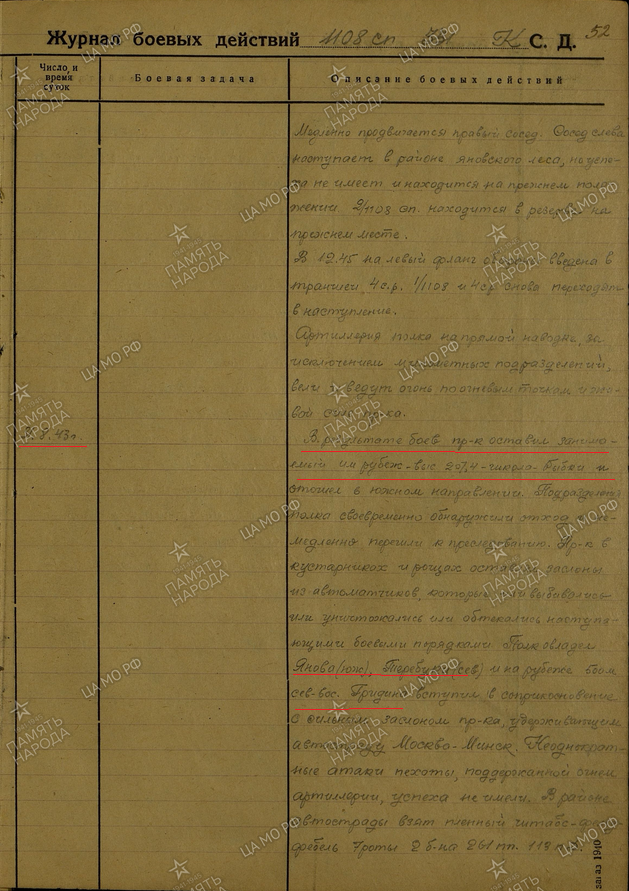 52
Журнал боевых действий 1108 сп К С. Д.
Число и время суток
Боевая задача
Описание боевых действий
Медленно продвигается правый сосед. Сосед слева
наступает в районе Яновского леса, не успе-
ха не имеет и находится на прежнем поло-
жении 2/1108 сп. находится в резерве на
прежнем месте.
В 12.45 на левый фланг обороны введена в
траншеи 4 с.р. 1/1108 и 4 ср снова переходят
в наступление.
Артиллерия полка на прямой наводке, за
исключением минометных подразделений,
вели и ведут огонь по огневым точкам и жи-
вой силе пр-ка.
8.43г.
В результате боев пр-к оставил занима-
емый им рубеж - выс 207,4 - школа - и
отошел в южном направлении. Подразделения
полка своевременно обнаружили отход и не-
медленно перешли к преследованию. Пр-к в
кустарниках и рощах оставил заслоны
из автоматчиков, которые или выбивались
или уничтожались или обтекались наступа-
ющими боевыми порядками. Полк овладел
Янова (юж), (сев) и на рубеже
сев-вос. Гридино вступил в соприкосновение
с сильным заслоном пр-ка, удерживающим
автостраду Москва-Минск. Неоднократ-
ные атаки пехоты, поддержанной огнем
артиллерии, успеха не имели. В районе
автострады взят пленный штабс-фельд-
фебель 7 роты 2 б-на 261 пп. 113
заказ 1940
ПАМЯТЬ НАРОДА
ЦА МО РФ